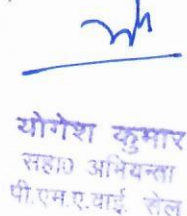 योगेश कुमार
सहा० अभियन्ता
पी.एम.ए.वाई. सेल